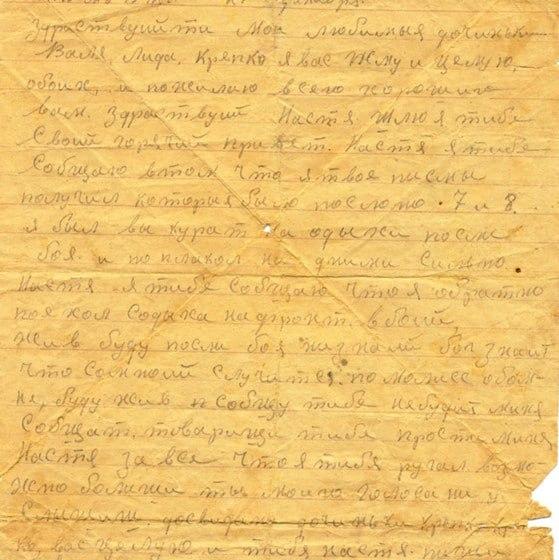 здраствуйти Мои любимыя дочиньки
Валя, Лида, Крепко я вас Жму и целую
обоих, и пожилаю всего хорошиго
вам. Здраствуй Настя Шлю я тибе
Свой горячий привет. Настя я тибе
Собщаю втом что я твое писмы
получил которыя было послоно 7 и 8.
я был вы курат на одыхи после
боя и поплакол на днили Сильно
Настя я тибе Собщаю что я обратно
поехол Содыха на фронт. в бой,
жив буду посли боя низнаю бог знаит
что Сомной Случится. помолися обом-
не, буду жив и собщу тибе небудит миня
Собщат товарищи тибе прости миня
Настя за все что я тибя ругал возмо-
жно больши ты моиго Голоса ни у-
слышиш. досвиданя дочиньки крепко кре-
ко вас целую и тибя настя.